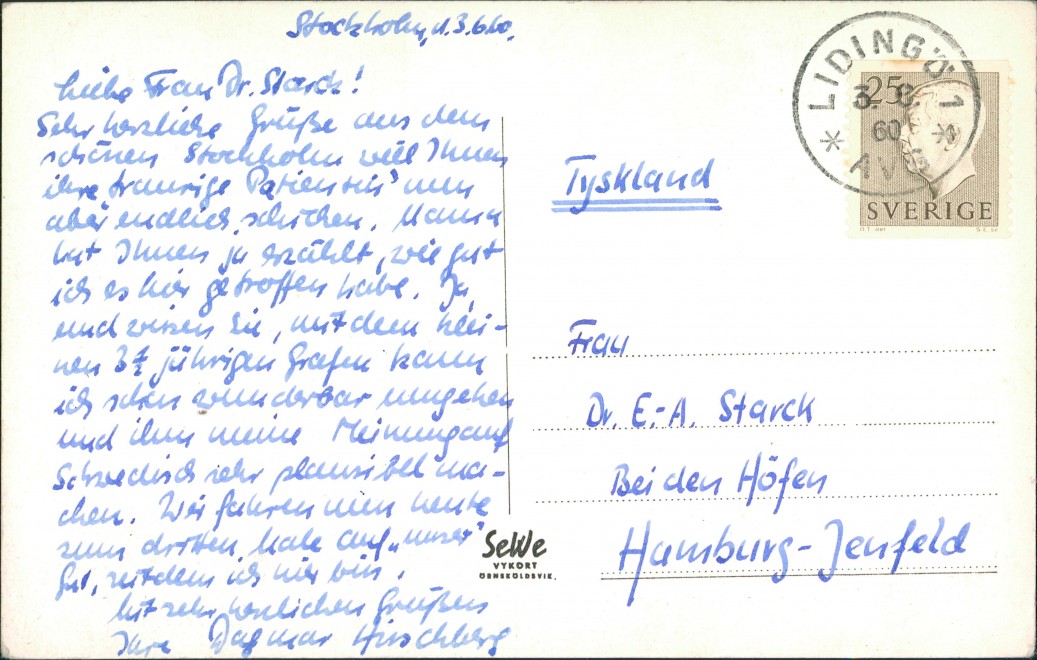 Stockholm, d. 3.6.60.
Liebe Frau Dr. Starck!
Sehr herzliche Grüße aus dem
schönen Stockholm will Ihnen
ihre traurige "Patientin" nun
aber endlich schicken. Mama
hat Ihnen ja erzählt, wie gut
ich es hier getroffen habe. Ja,
und wissen Sie, mit dem klei-
nen 3½ jährigen Grafen kann
ich schon wunderbar umgehen
und ihm meine Meinung auf
Schwedisch sehr plausibel ma-
chen. Wir fahren nun heute
zum dritten Male auf "unser"
Gut, seitdem ich hier bin.
Mit sehr herzlichen Grüßen
Ihre Dagmar Hirschberg
SeWe
VYKORT
ÖRNSKÖLDSVIK.
LIDINGÖ 1
60
AVG
25
SVERIGE
Tyskland
Frau
Dr. E.-A. Starck
Bei den Höfen
Hamburg-Jenfeld